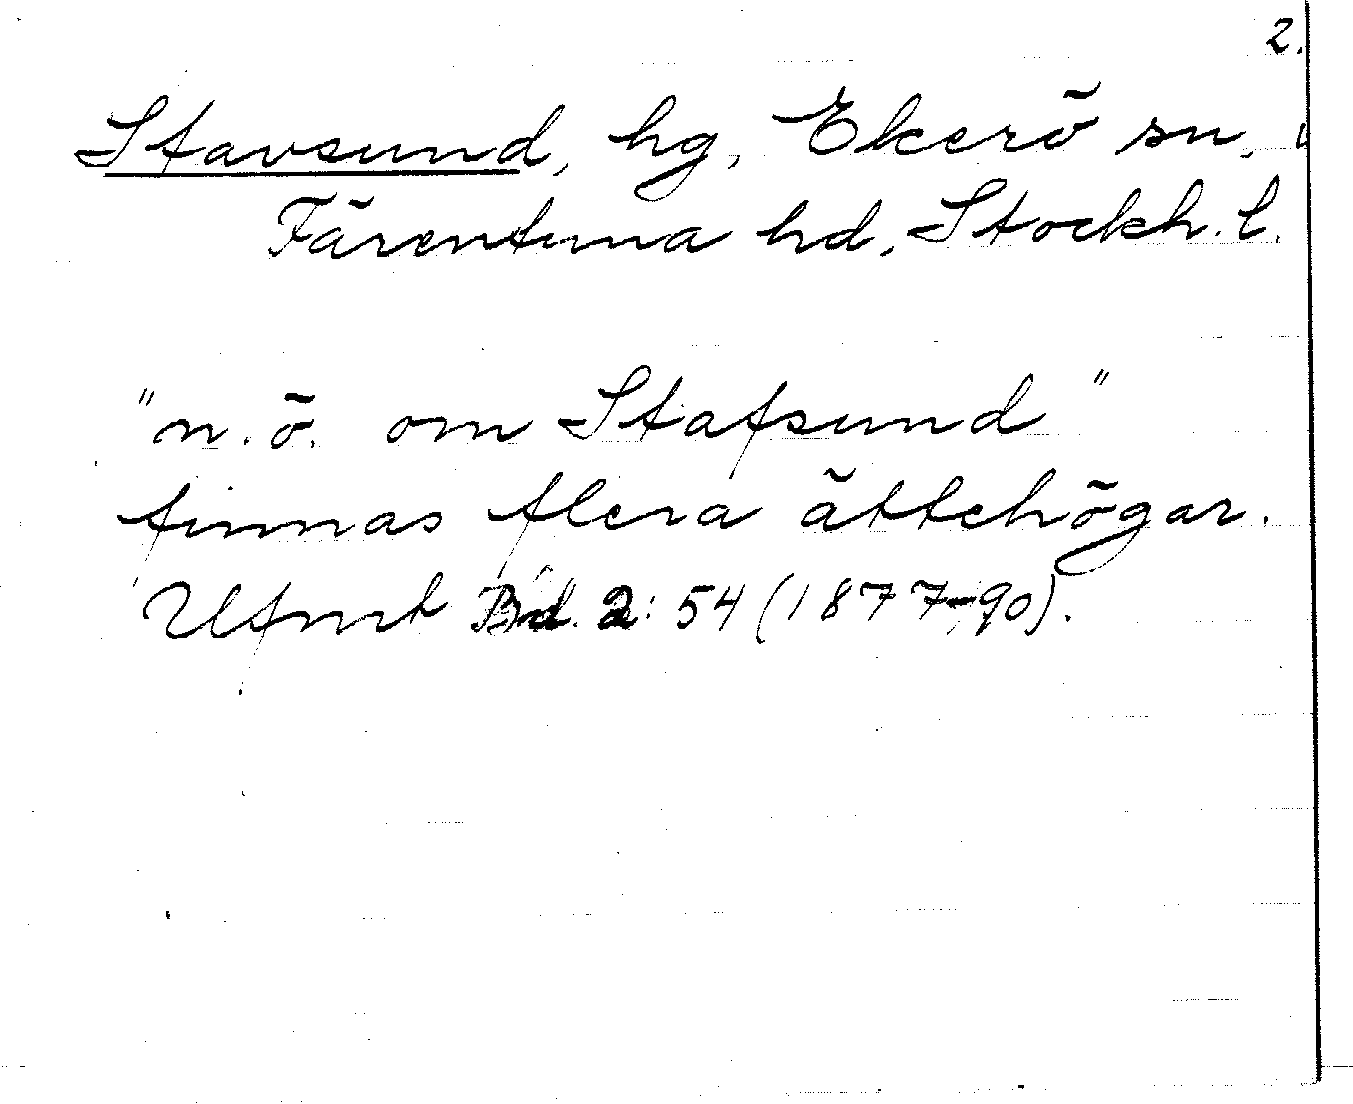 2.
Stavsund, hg, Ekerö sn,
Färentuna hd, Stockh. l.
"n. ö. om Stafsund"
finnas flera ättehögar.
Ufmt Bd. 2: 54 (1877-90).